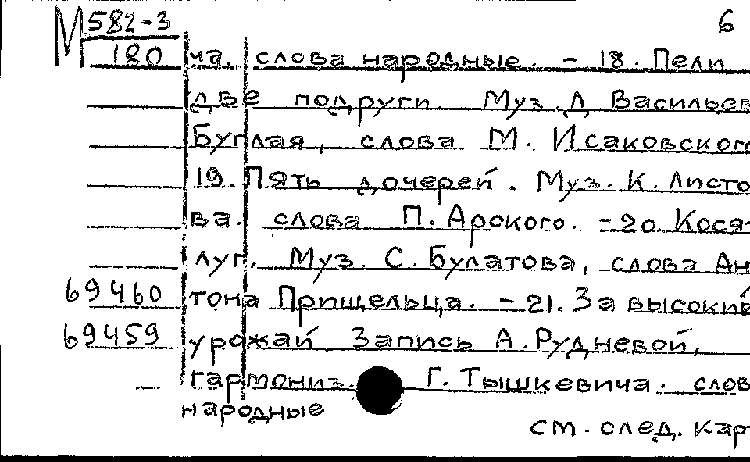 М 582-3 6
180 ча. слова народные. - 18. Пели
две подруги. Муз. Д Васильев
Буглая, слова М. Исаковског
19. Пять дочерей. Муз. К. Листо
ва. слова П. Арского. - 20. Кося-
луг. Муз. С. Булатова, слова Ан
69460 тона Пришельца. - 21. За высокий
69459 урожай Запись А. Рудневой,
гармониз. Г. Тышкевича. слов
народные
см. след. кар